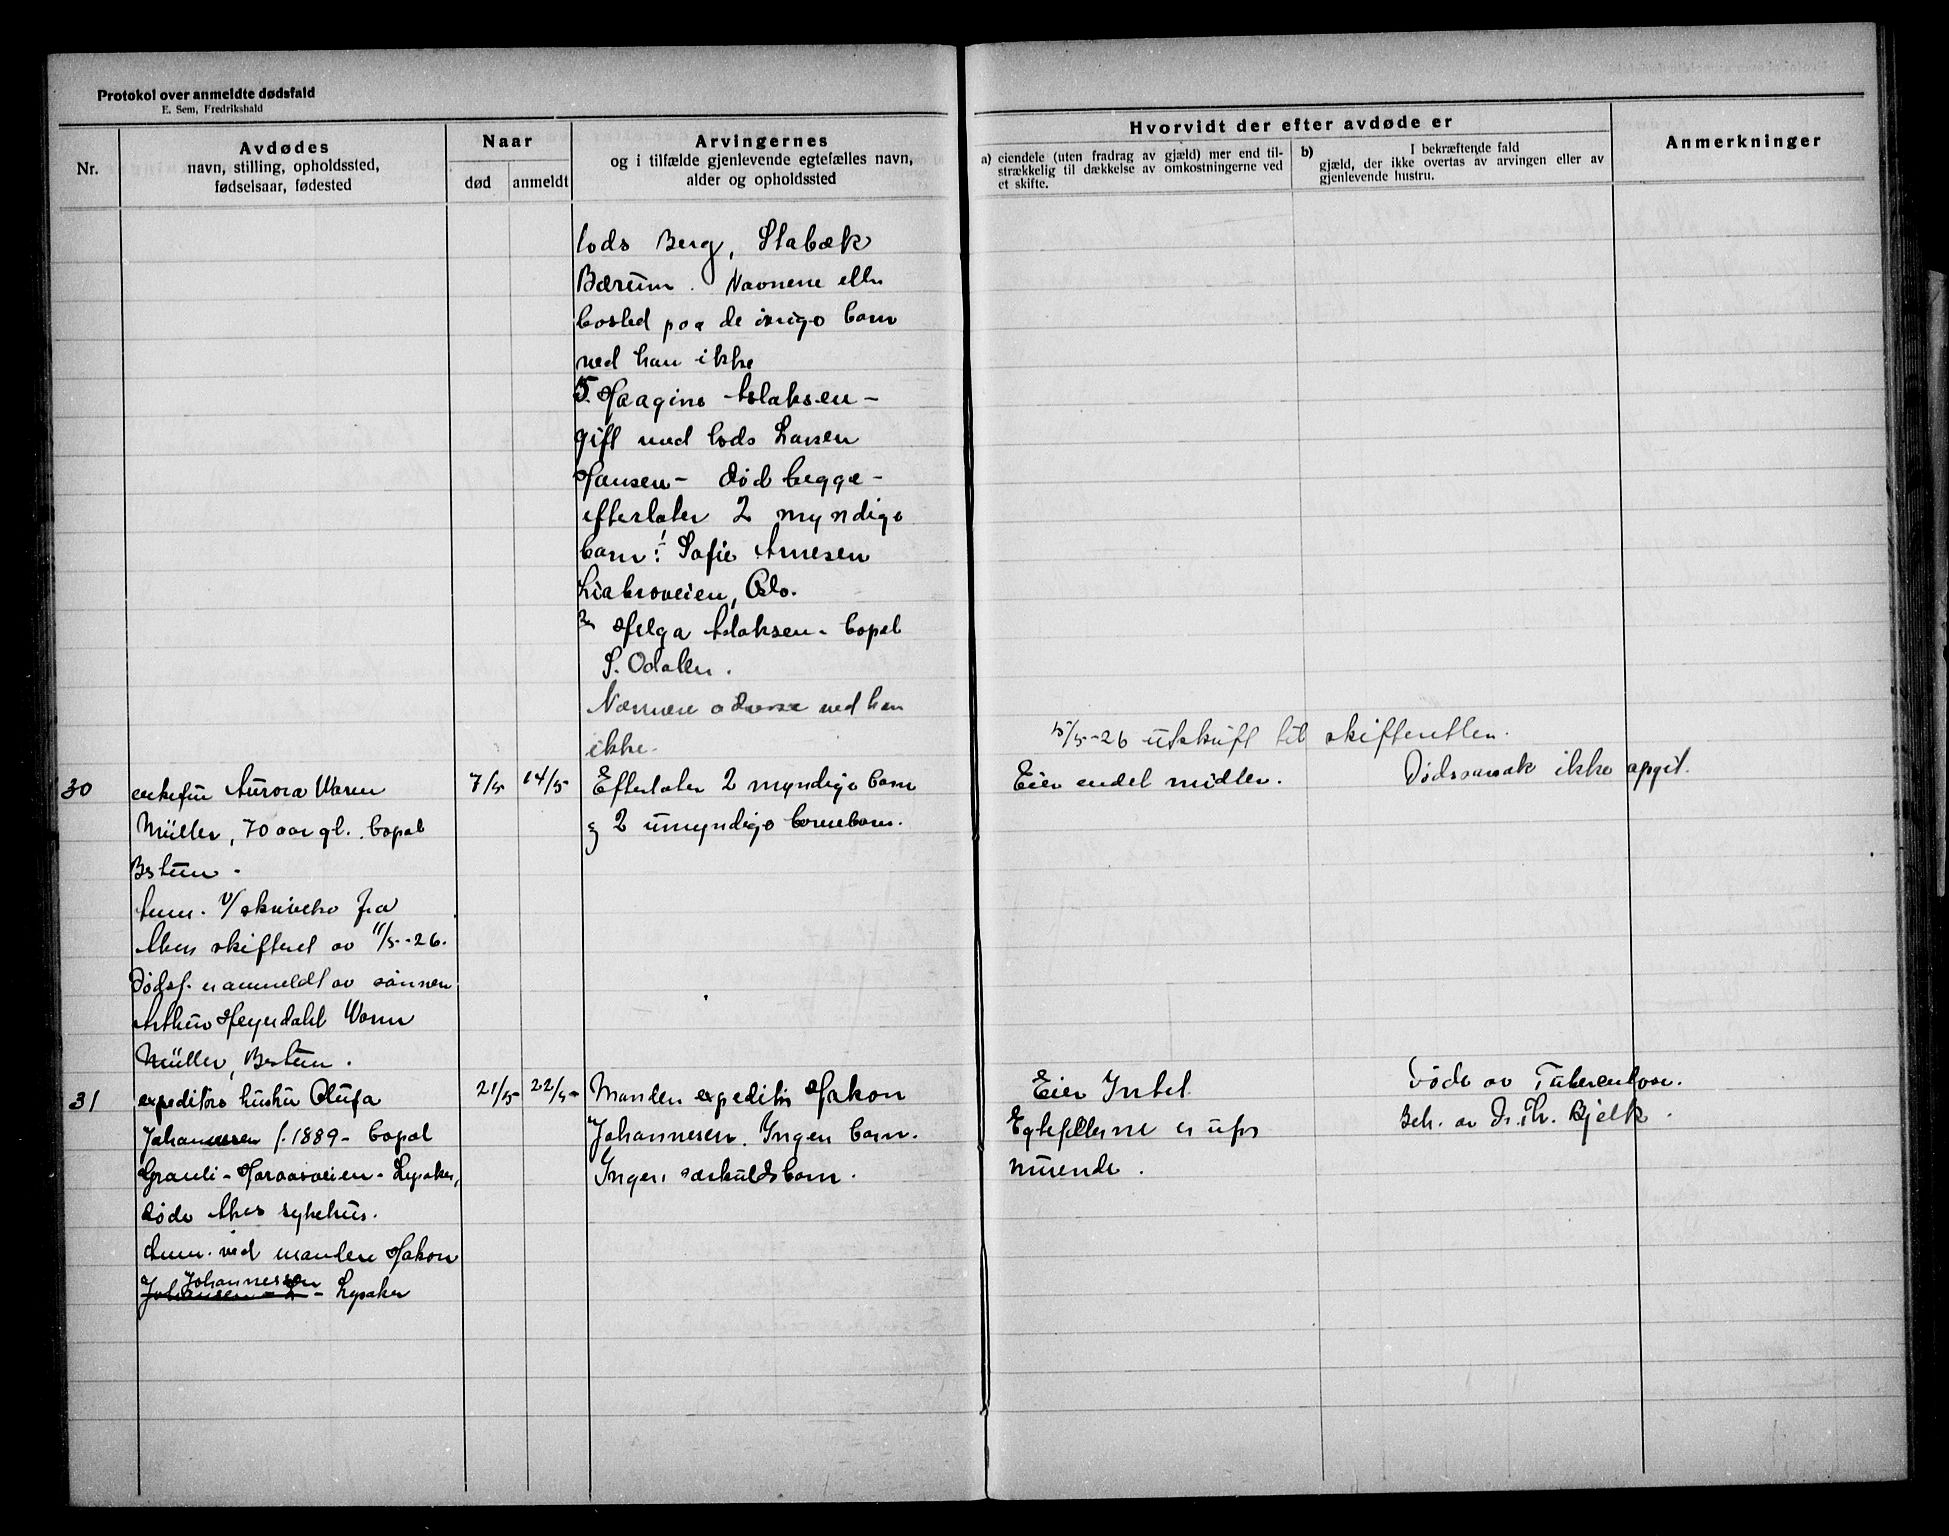 Protokol over anmeldte dødsfald
E. Sem, Fredrikshald
Nr.
Avdødes
navn, stilling, opholdssted,
fødselsaar, fødested
Naar
død
anmeldt
Arvingernes
og i tilfælde gjenlevende egtefælles navn,
alder og opholdssted
Hvorvidt der efter avdøde er
a) eiendele (uten fradrag av gjæld) mer end til-
strækkelig til dækkelse av omkostningerne ved
et skifte.
b) I bekræftende fald
gjæld, der ikke overtas av arvingen eller av
gjenlevende hustru.
Anmerkninger
lods Berg, Stabæk
Bærum. Navnene eller
bosted paa de øvrige barn
ved han ikke
5. Haagine Aslaksen -
gift med lods Larsen
Hansen - død begge -
efterlater 2 myndige
barn: Sofie Arnesen
Liabroveien, Oslo.
Helga Aslaksen - bopæl
S. Odalen.
Nærmere adresse ved han
ikke.
15/5-26 utskrift til skifteretten.
30
enkefru Aurora Worm
Müller, 70 aar gl. bopæl
Bestum -
Anm. v/ skrivelse fra
Akers skifteret av 11/5-26.
Dødsf. er anmeldt av sønnen
Arthur Heyerdahl Worm
Müller, Bestum.
7/5
14/5
Efterlater 2 myndige barn
og 2 umyndige barnebarn.
Eier endel midler.
Dødsaarsak ikke opgit.
31
expeditørs hustru Olufa
Johannessen f. 1889 - bopæl
Granli - Haraasveien - Lysaker,
døde Akers sykehus.
Anm. ved manden Hakon
Johannessen
Johansen - L - Lysaker
21/5
22/5
Manden expeditør Hakon
Johannesen. Ingen barn.
Ingen særkuldsbarn.
Eier Intet.
Egtefellerne er ufor
muende.
Døde av Tuberculose.
Beh. av Dr. Th. Bjelk.